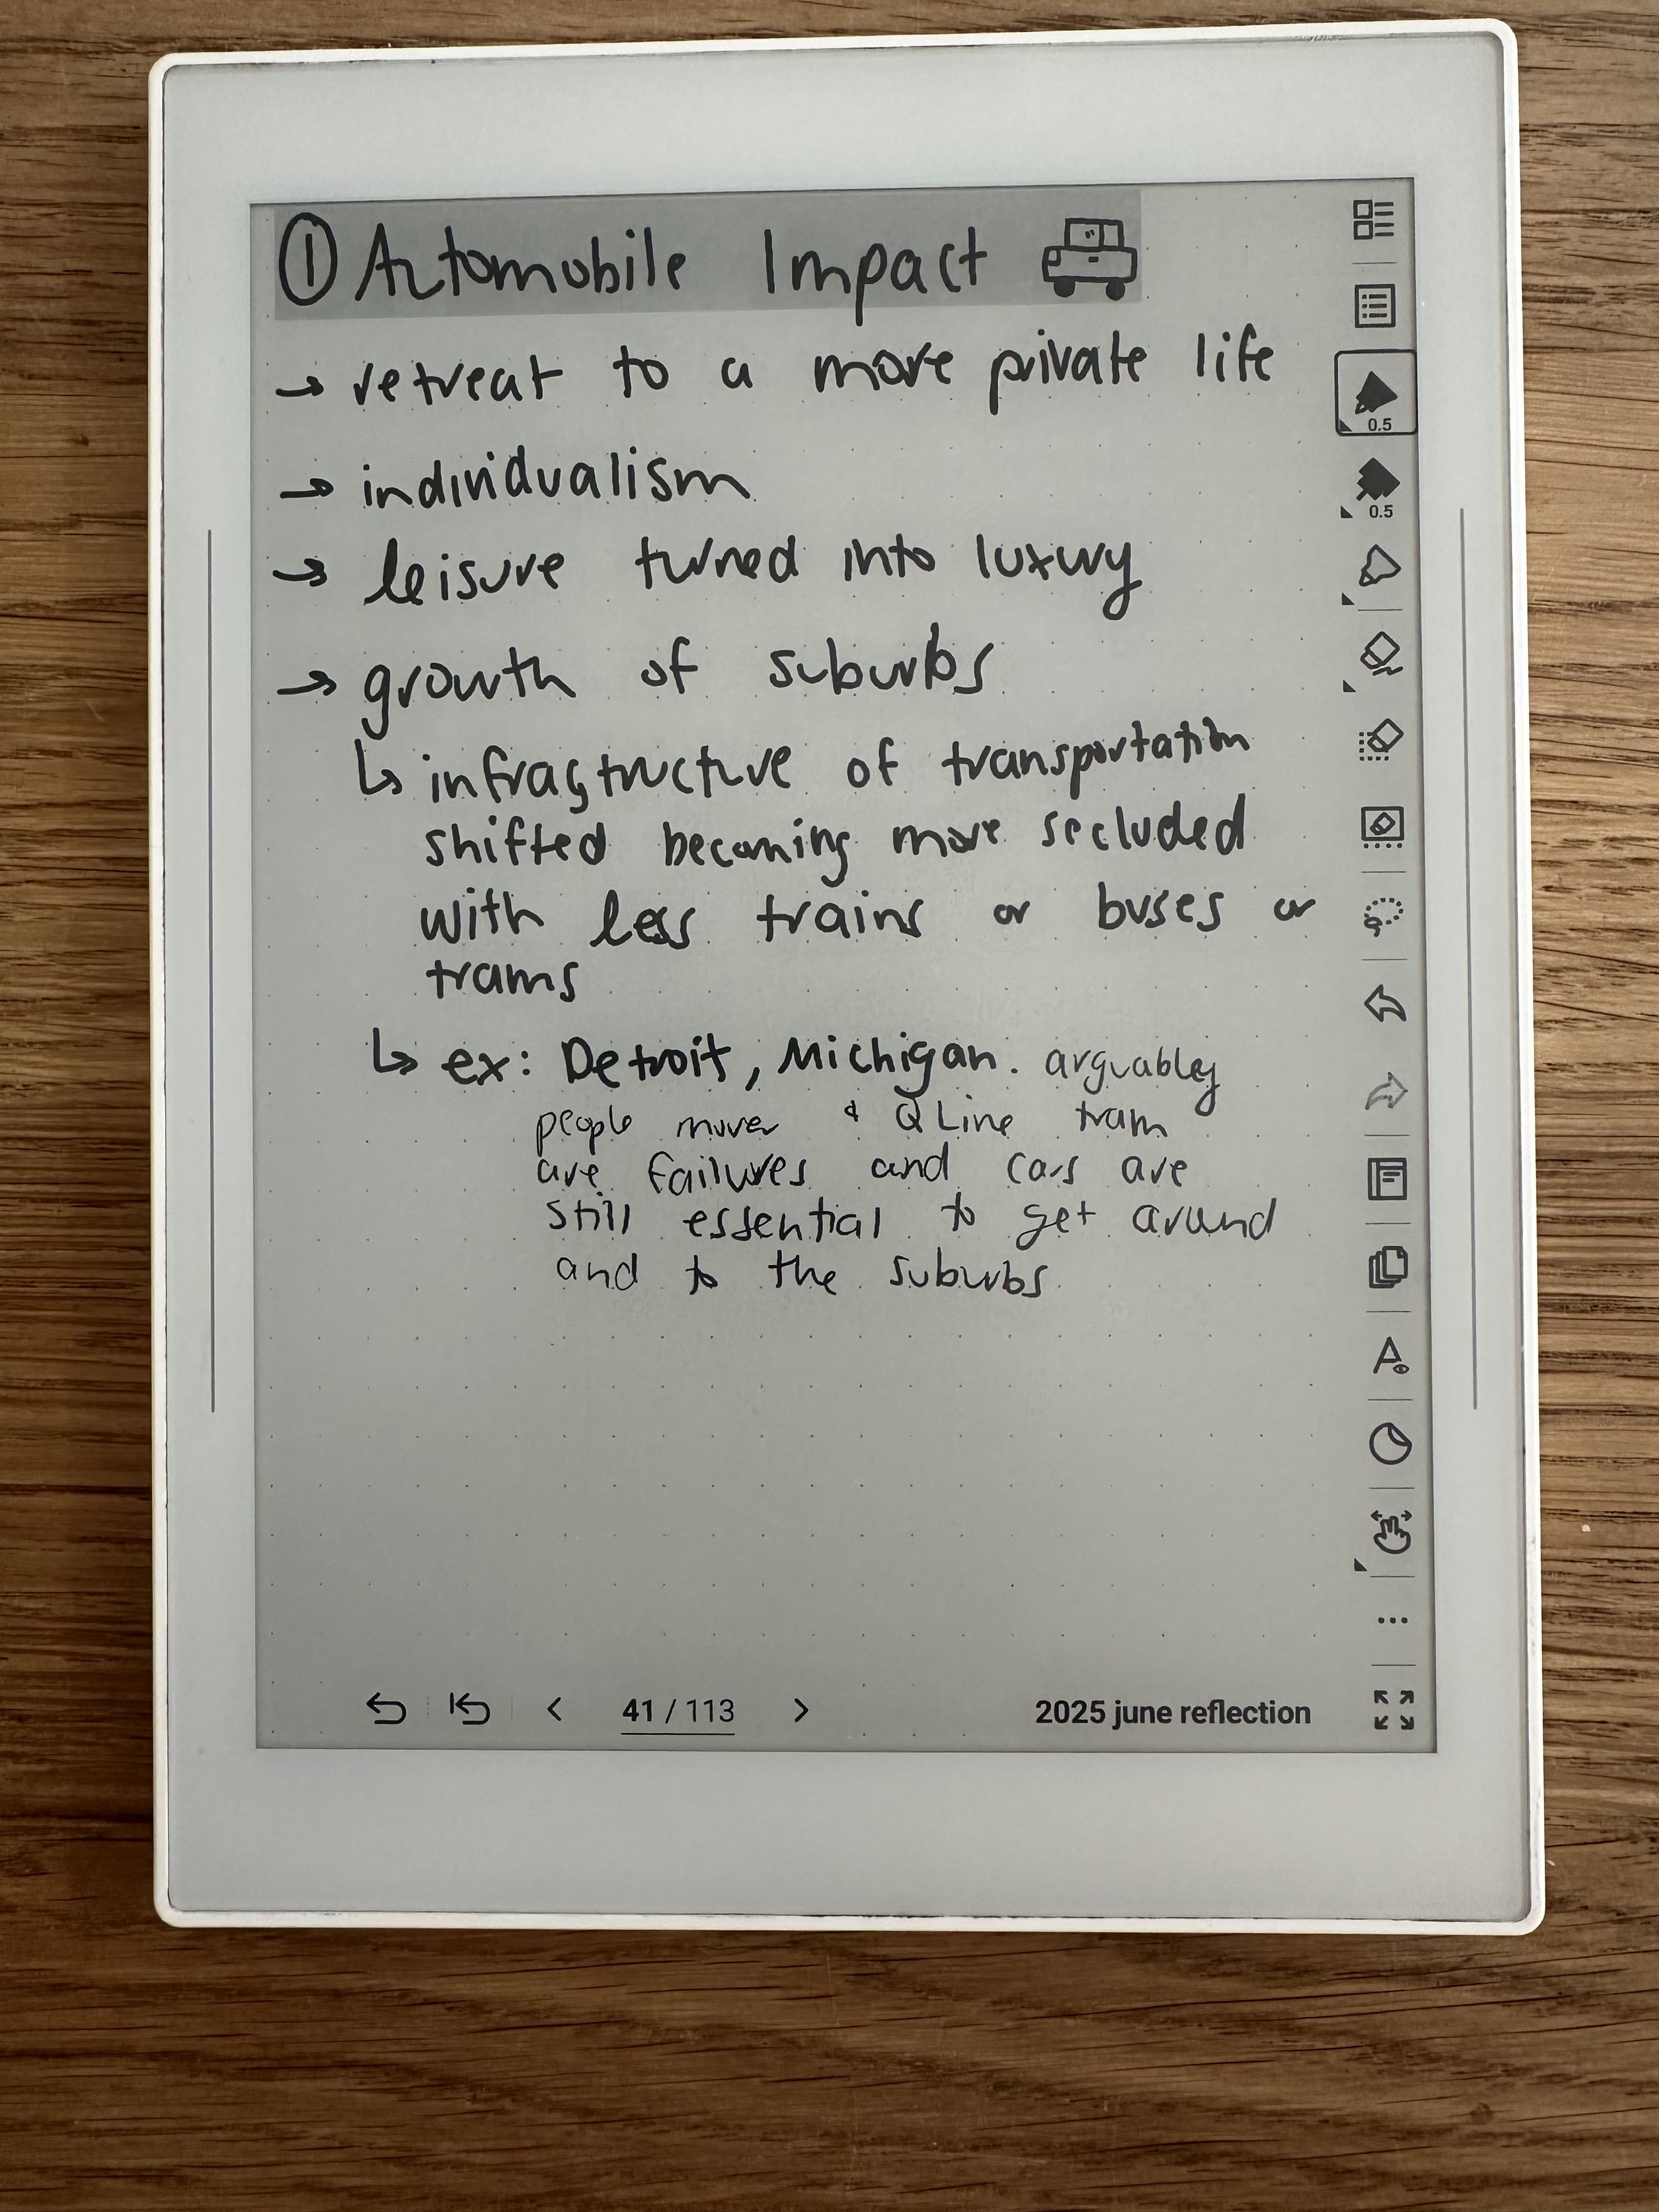 ① Automobile Impact
→ retreat to a more private life
→ individualism
→ leisure turned into luxury
→ growth of suburbs
↳ infrastructure of transportation
shifted becoming more secluded
with less trains or buses or
trams
↳ ex: Detroit, Michigan. arguabley
people mover & QLine tram
are failures and cars are
still essential to get around
and to the suburbs
0.5
0.5
41 / 113
2025 june reflection